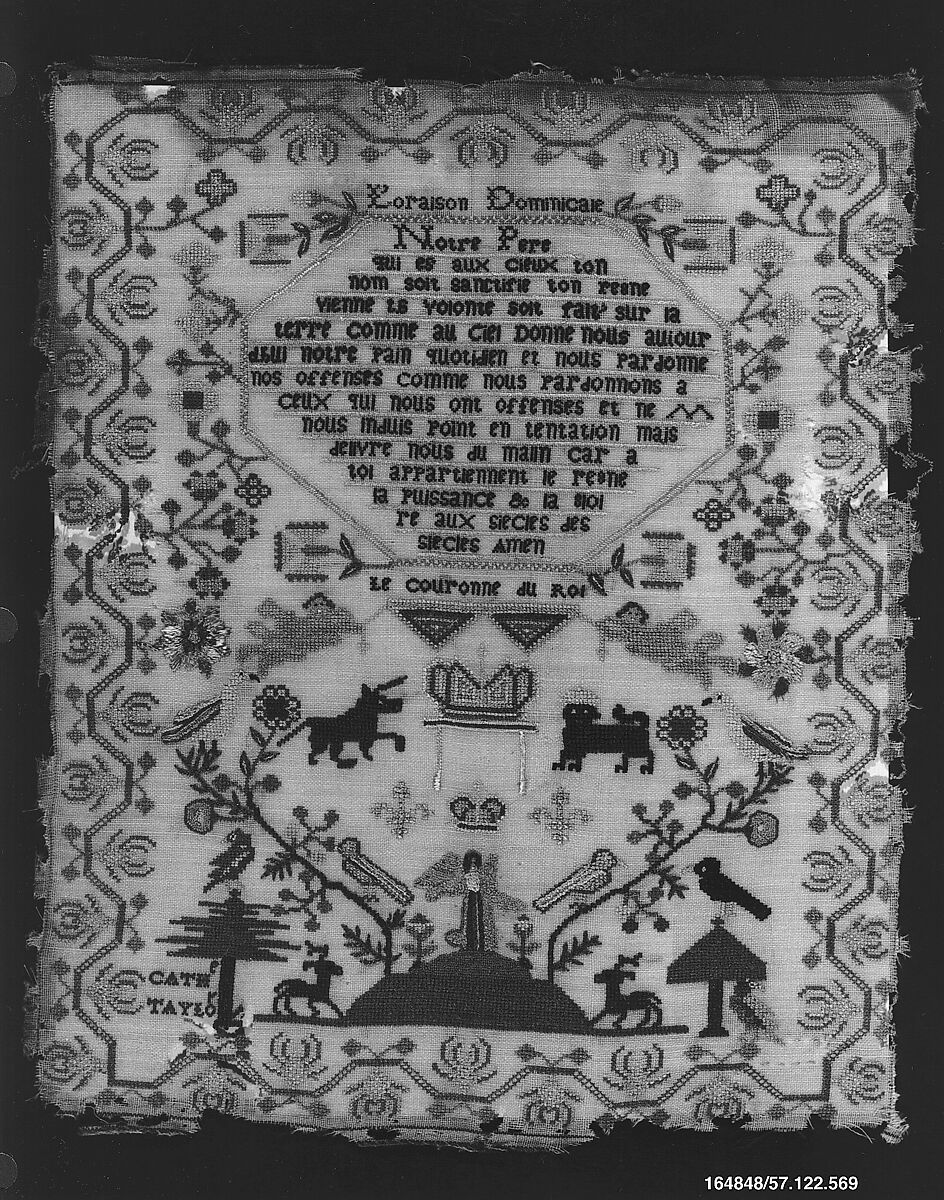 L'oraison Dominicale
Notre Pere
qui es aux cieux ton
nom soit sanctifie ton regne
vienne ta volonte soit faite sur la
terre comme au ciel Donne nous aujour
dhui notre pain quotidien et nous pardonne
nos offenses comme nous pardonnons a
ceux qui nous ont offenses et ne
nous induis point en tentation mais
delivre nous du malin car a
toi appartiennent le regne
la puissance & la gloi
re aux siecles des
siecles Amen
Le couronne du Roi
CATHe
TAYLOr
164848/57.122.569